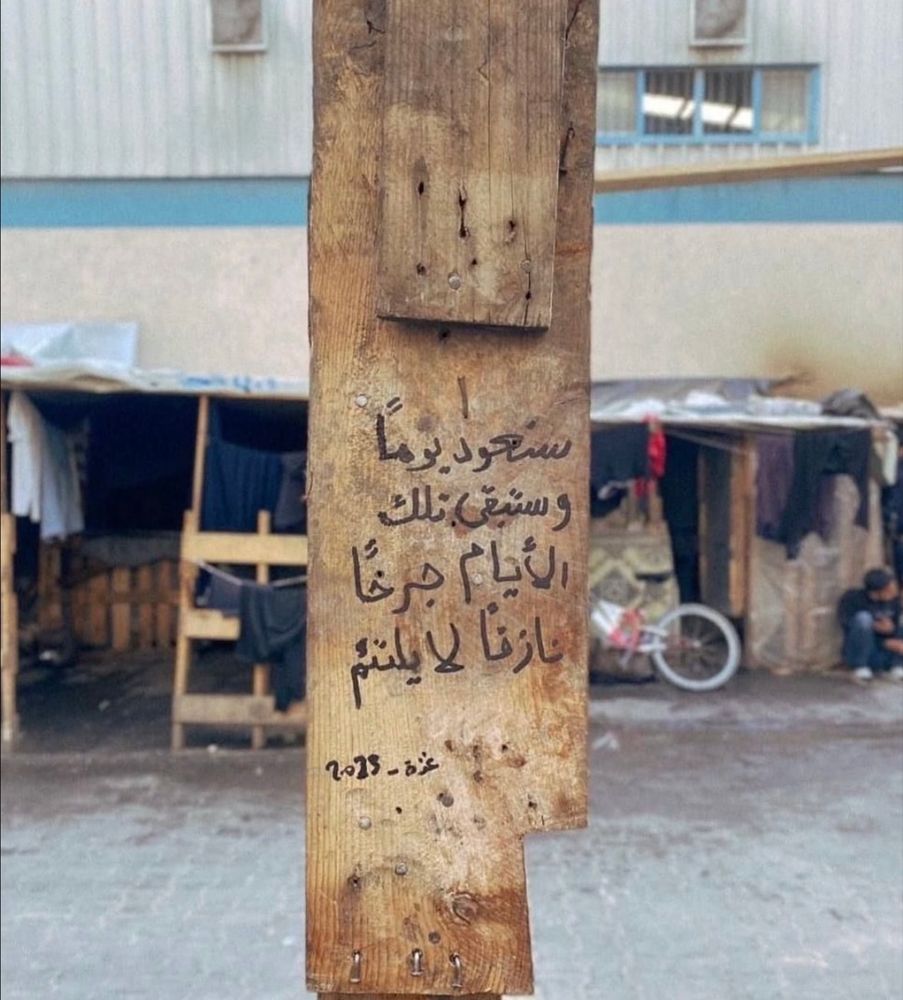 سنعود يوماً
وستبقى تلك
الأيام جرحًا
نازفاً لا يلتئم
غزة - 2025